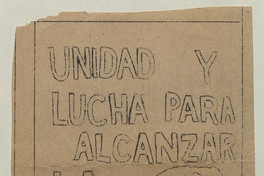 UNIDAD Y
LUCHA PARA
ALCANZAR
LA